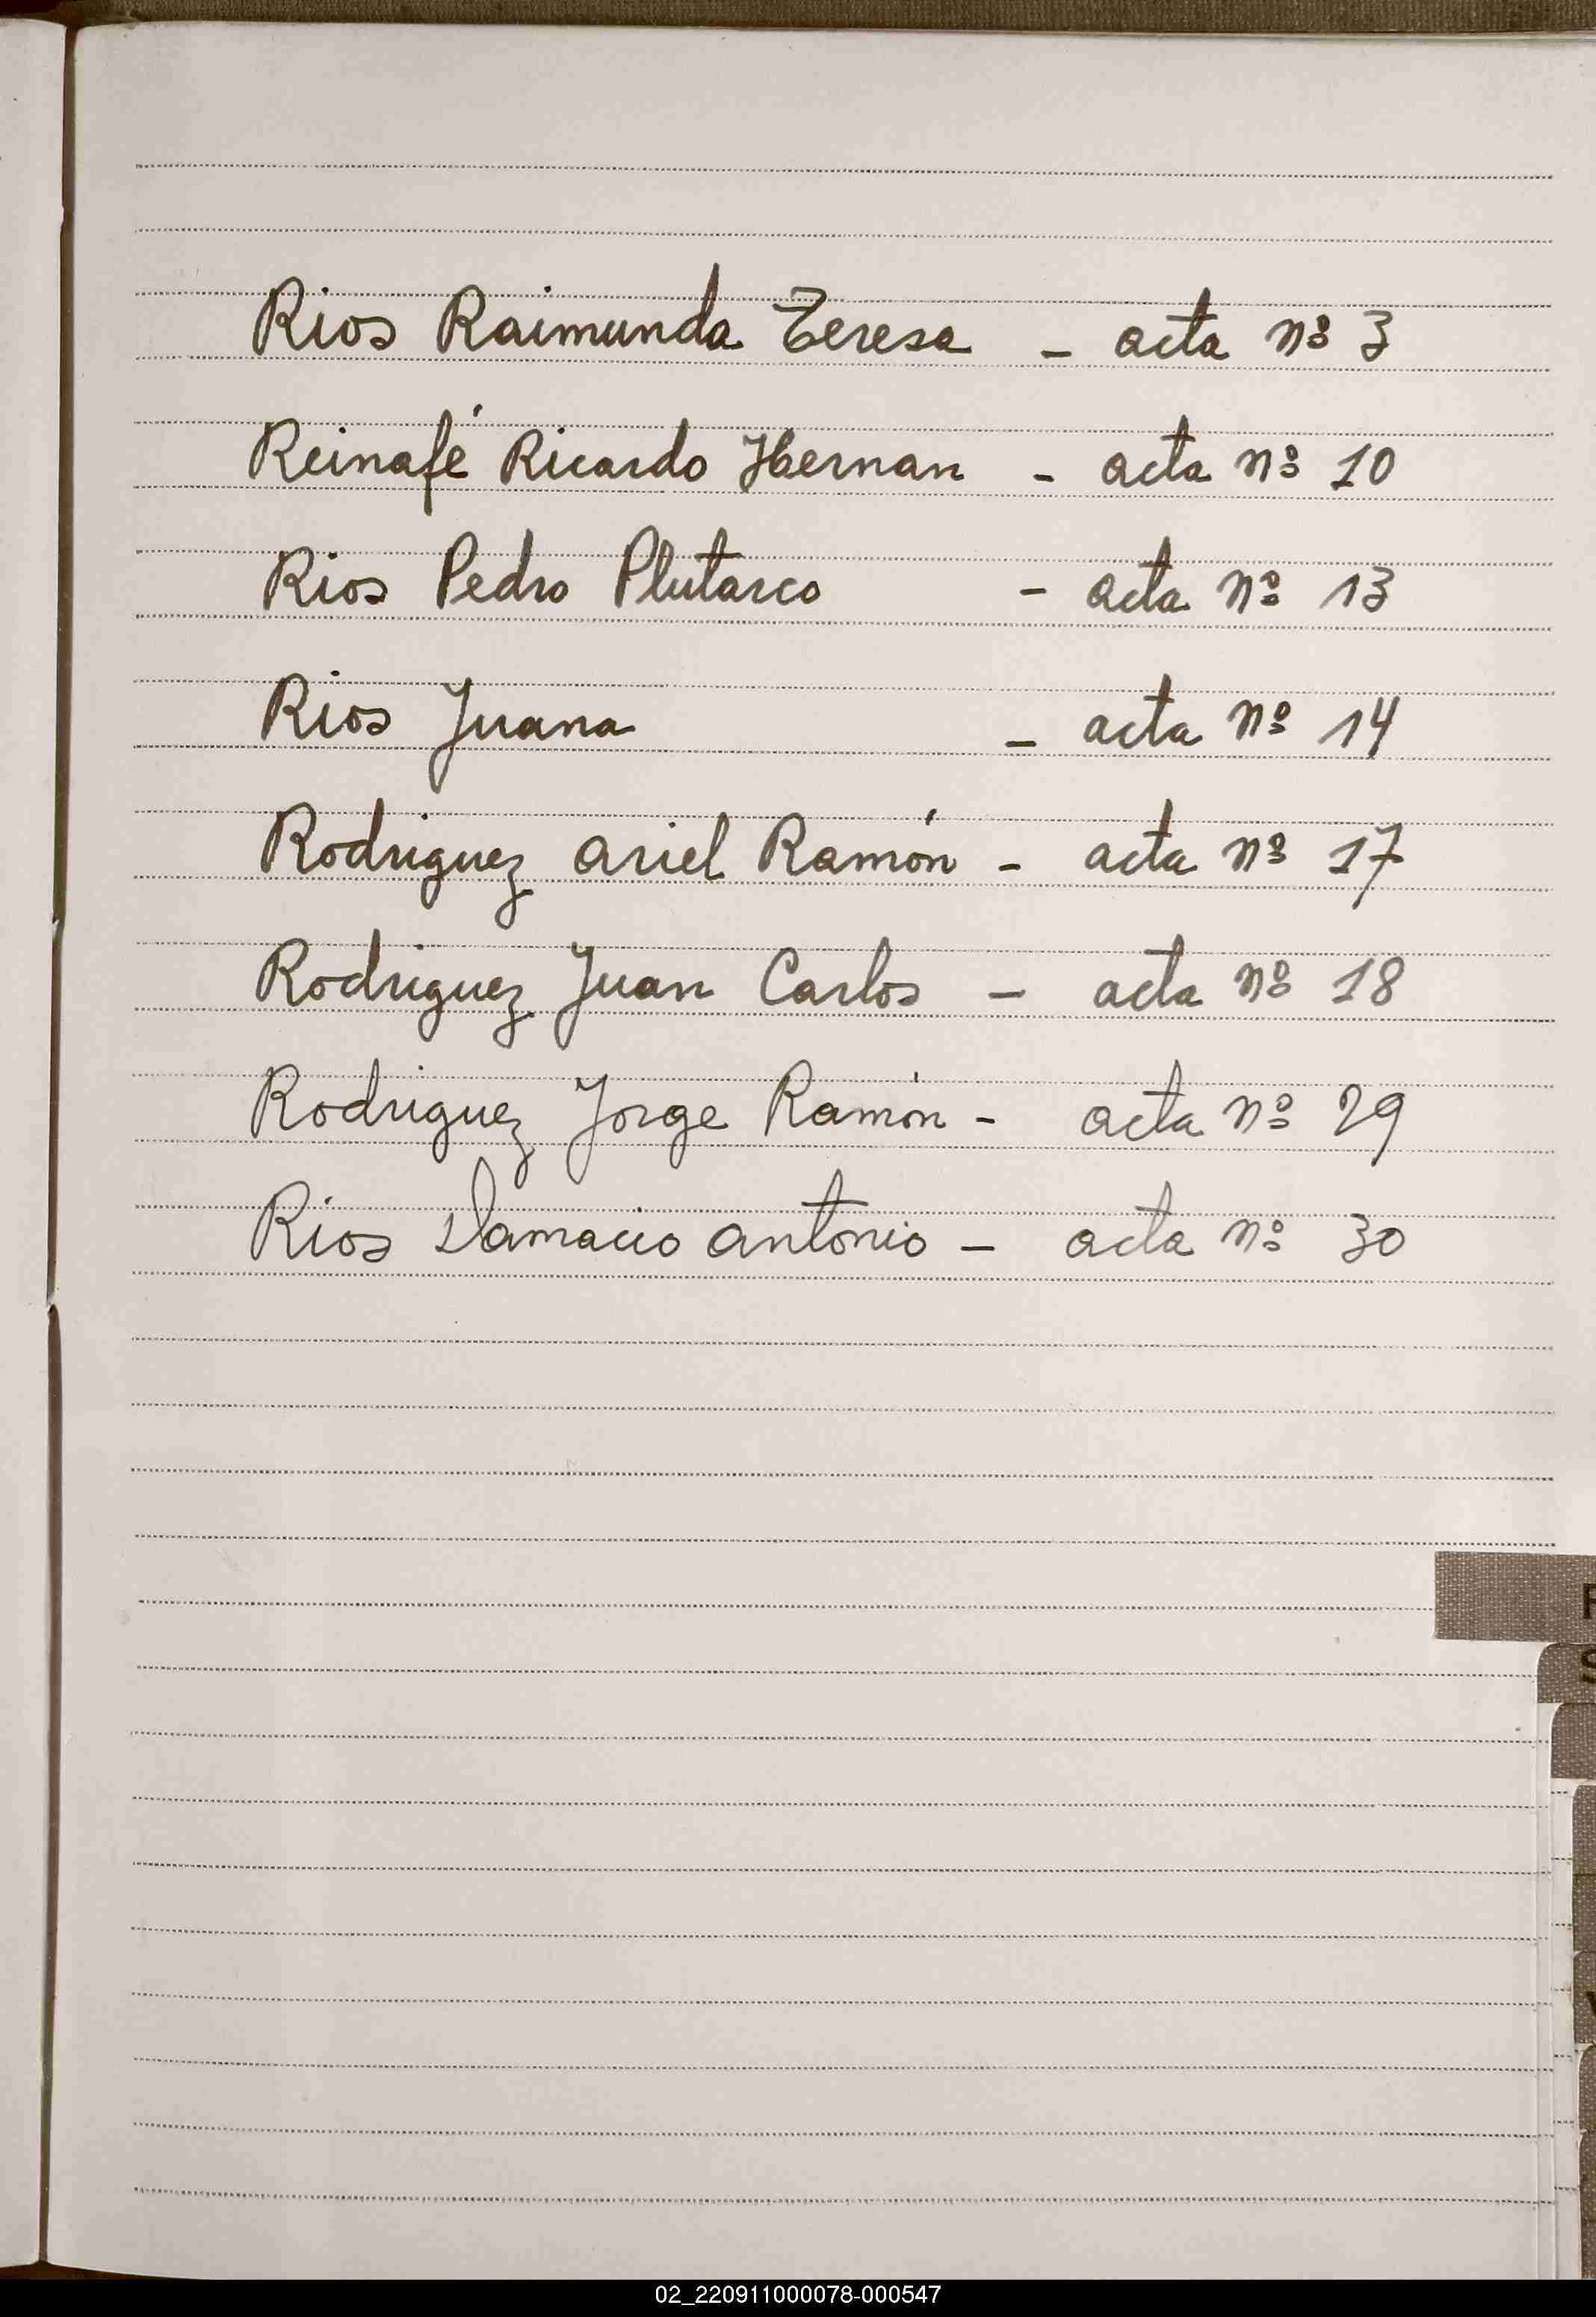 Rios Raimunda Teresa - acta nº 3
Reinafé Ricardo Hernan - acta nº 10
Rios Pedro Plutarco - acta nº 13
Rios Juana - acta nº 14
Rodriguez Ariel Ramón - acta nº 17
Rodriguez Juan Carlos - acta nº 18
Rodriguez Jorge Ramón - acta nº 29
Rios Damacio Antonio - acta nº 30
S
02_220911000078-000547